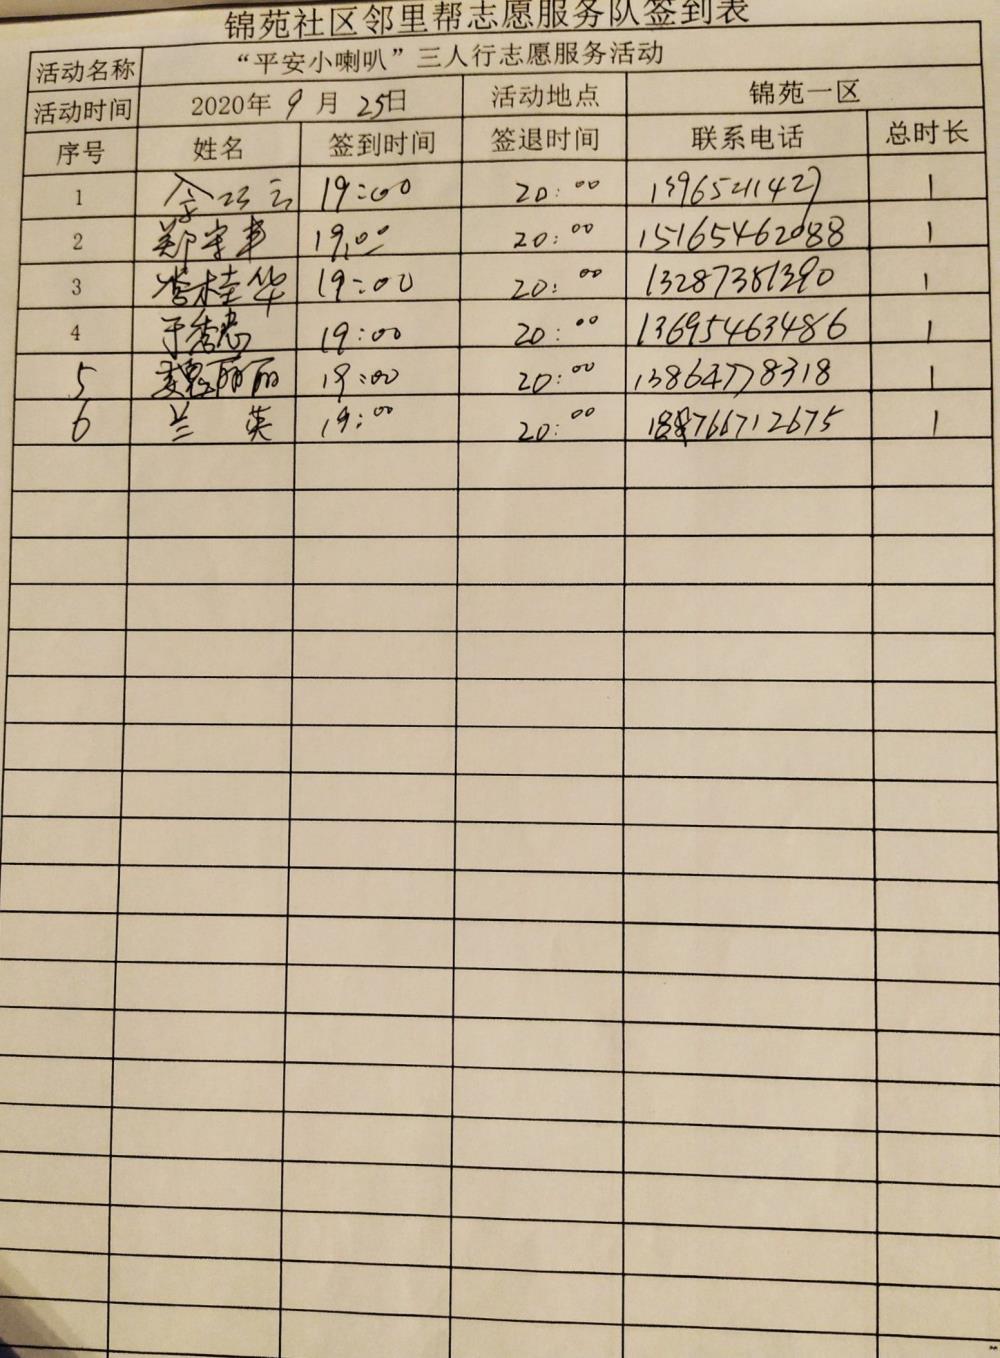 锦苑社区邻里帮志愿服务队签到表
活动名称 “平安小喇叭”三人行志愿服务活动
活动时间 2020年 9 月 25日 活动地点 锦苑一区
序号 姓名 签到时间 签退时间 联系电话 总时长
1 19:00 20:00 1
2 19:00 20:00 15165462088 1
3 桂华 19:00 20:00 13287381390 1
4 于秀忠 19:00 20:00 13695463486 1
5 魏丽丽 19:00 20:00 13864778318 1
6 兰 英 19:00 20:00 1